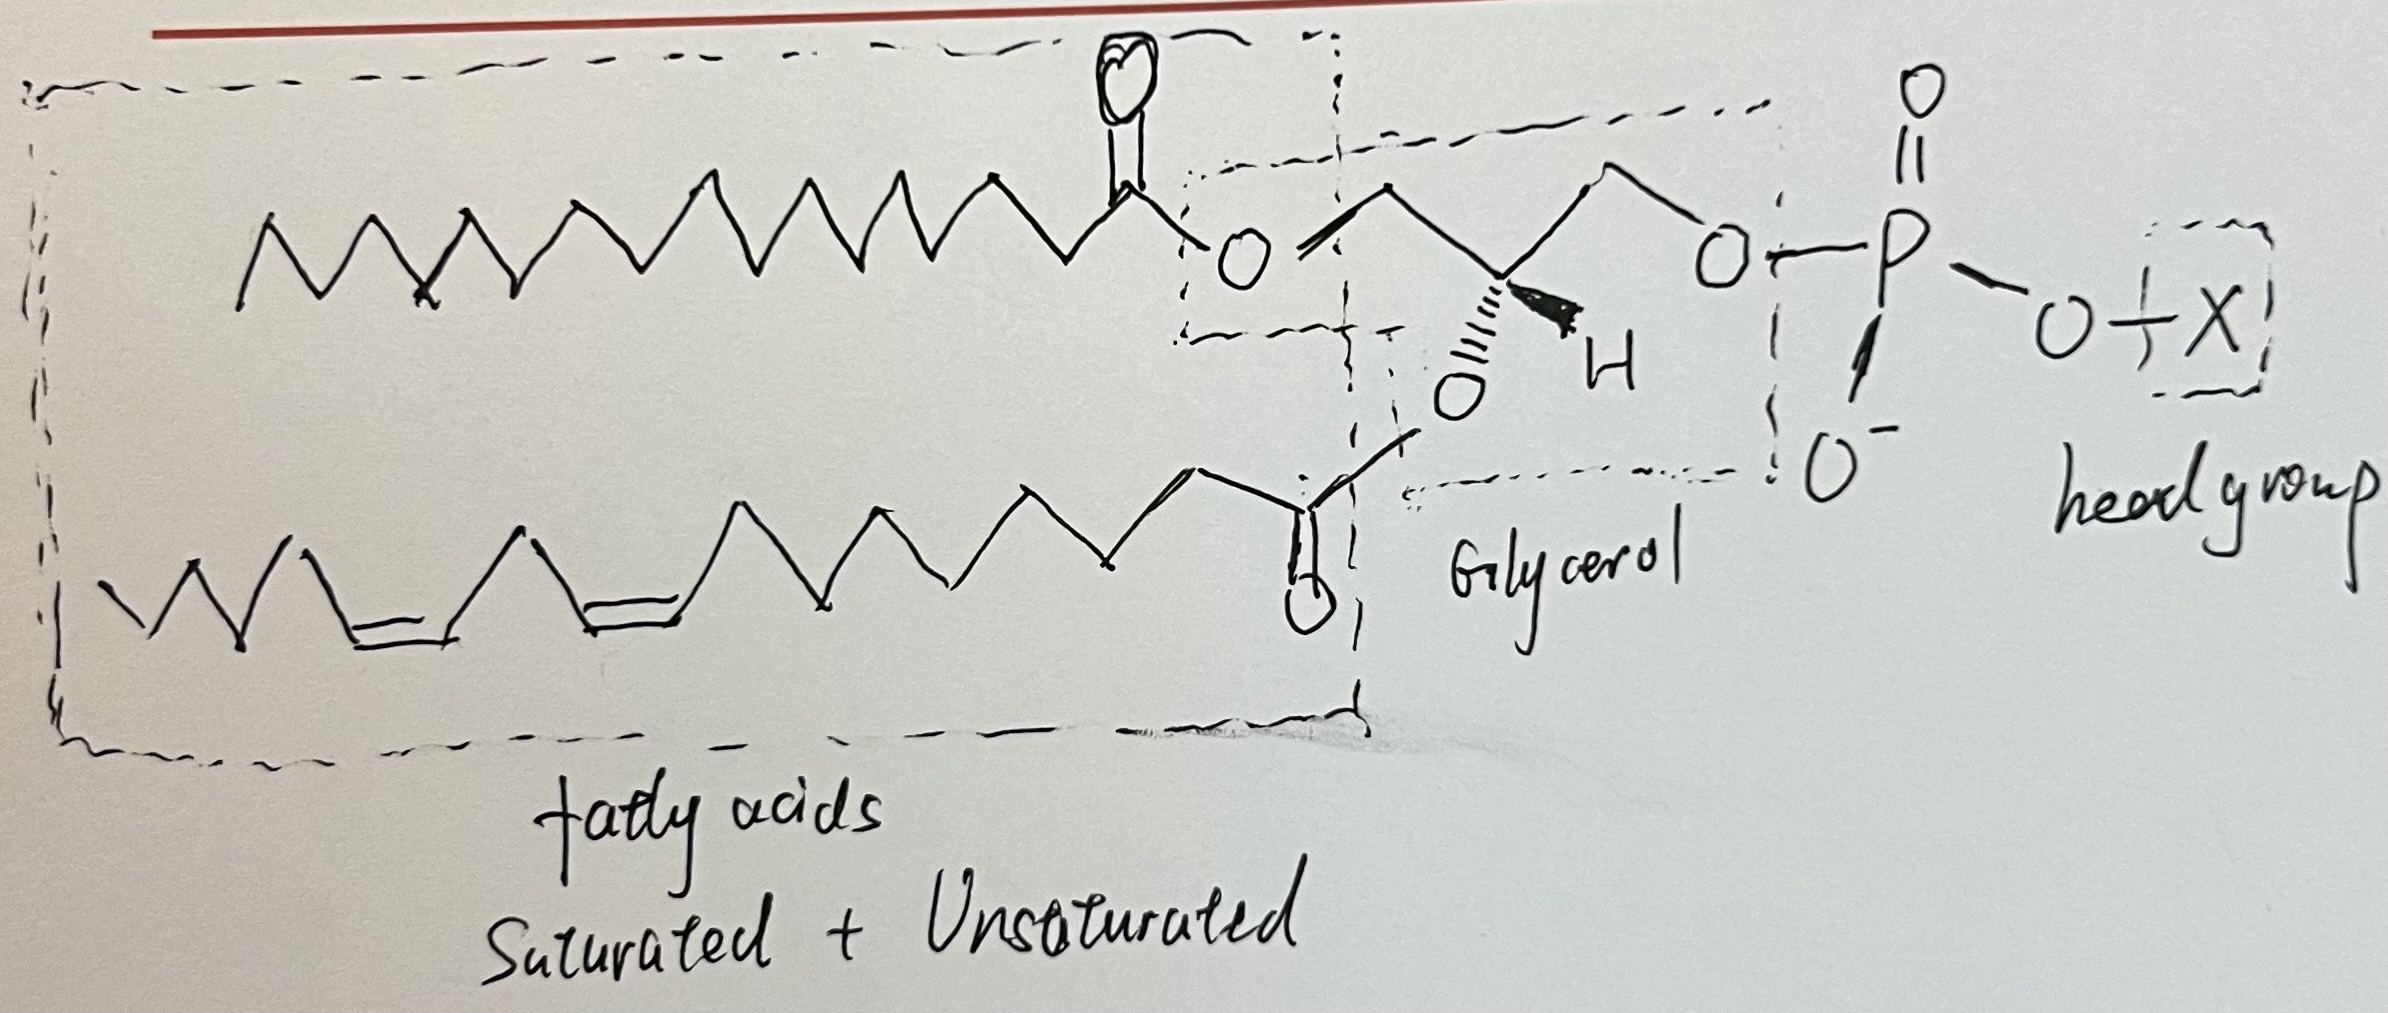 O
O
O
O
P
O
X
H
O
O⁻
O
head group
Glycerol
fatty acids
Saturated + Unsaturated